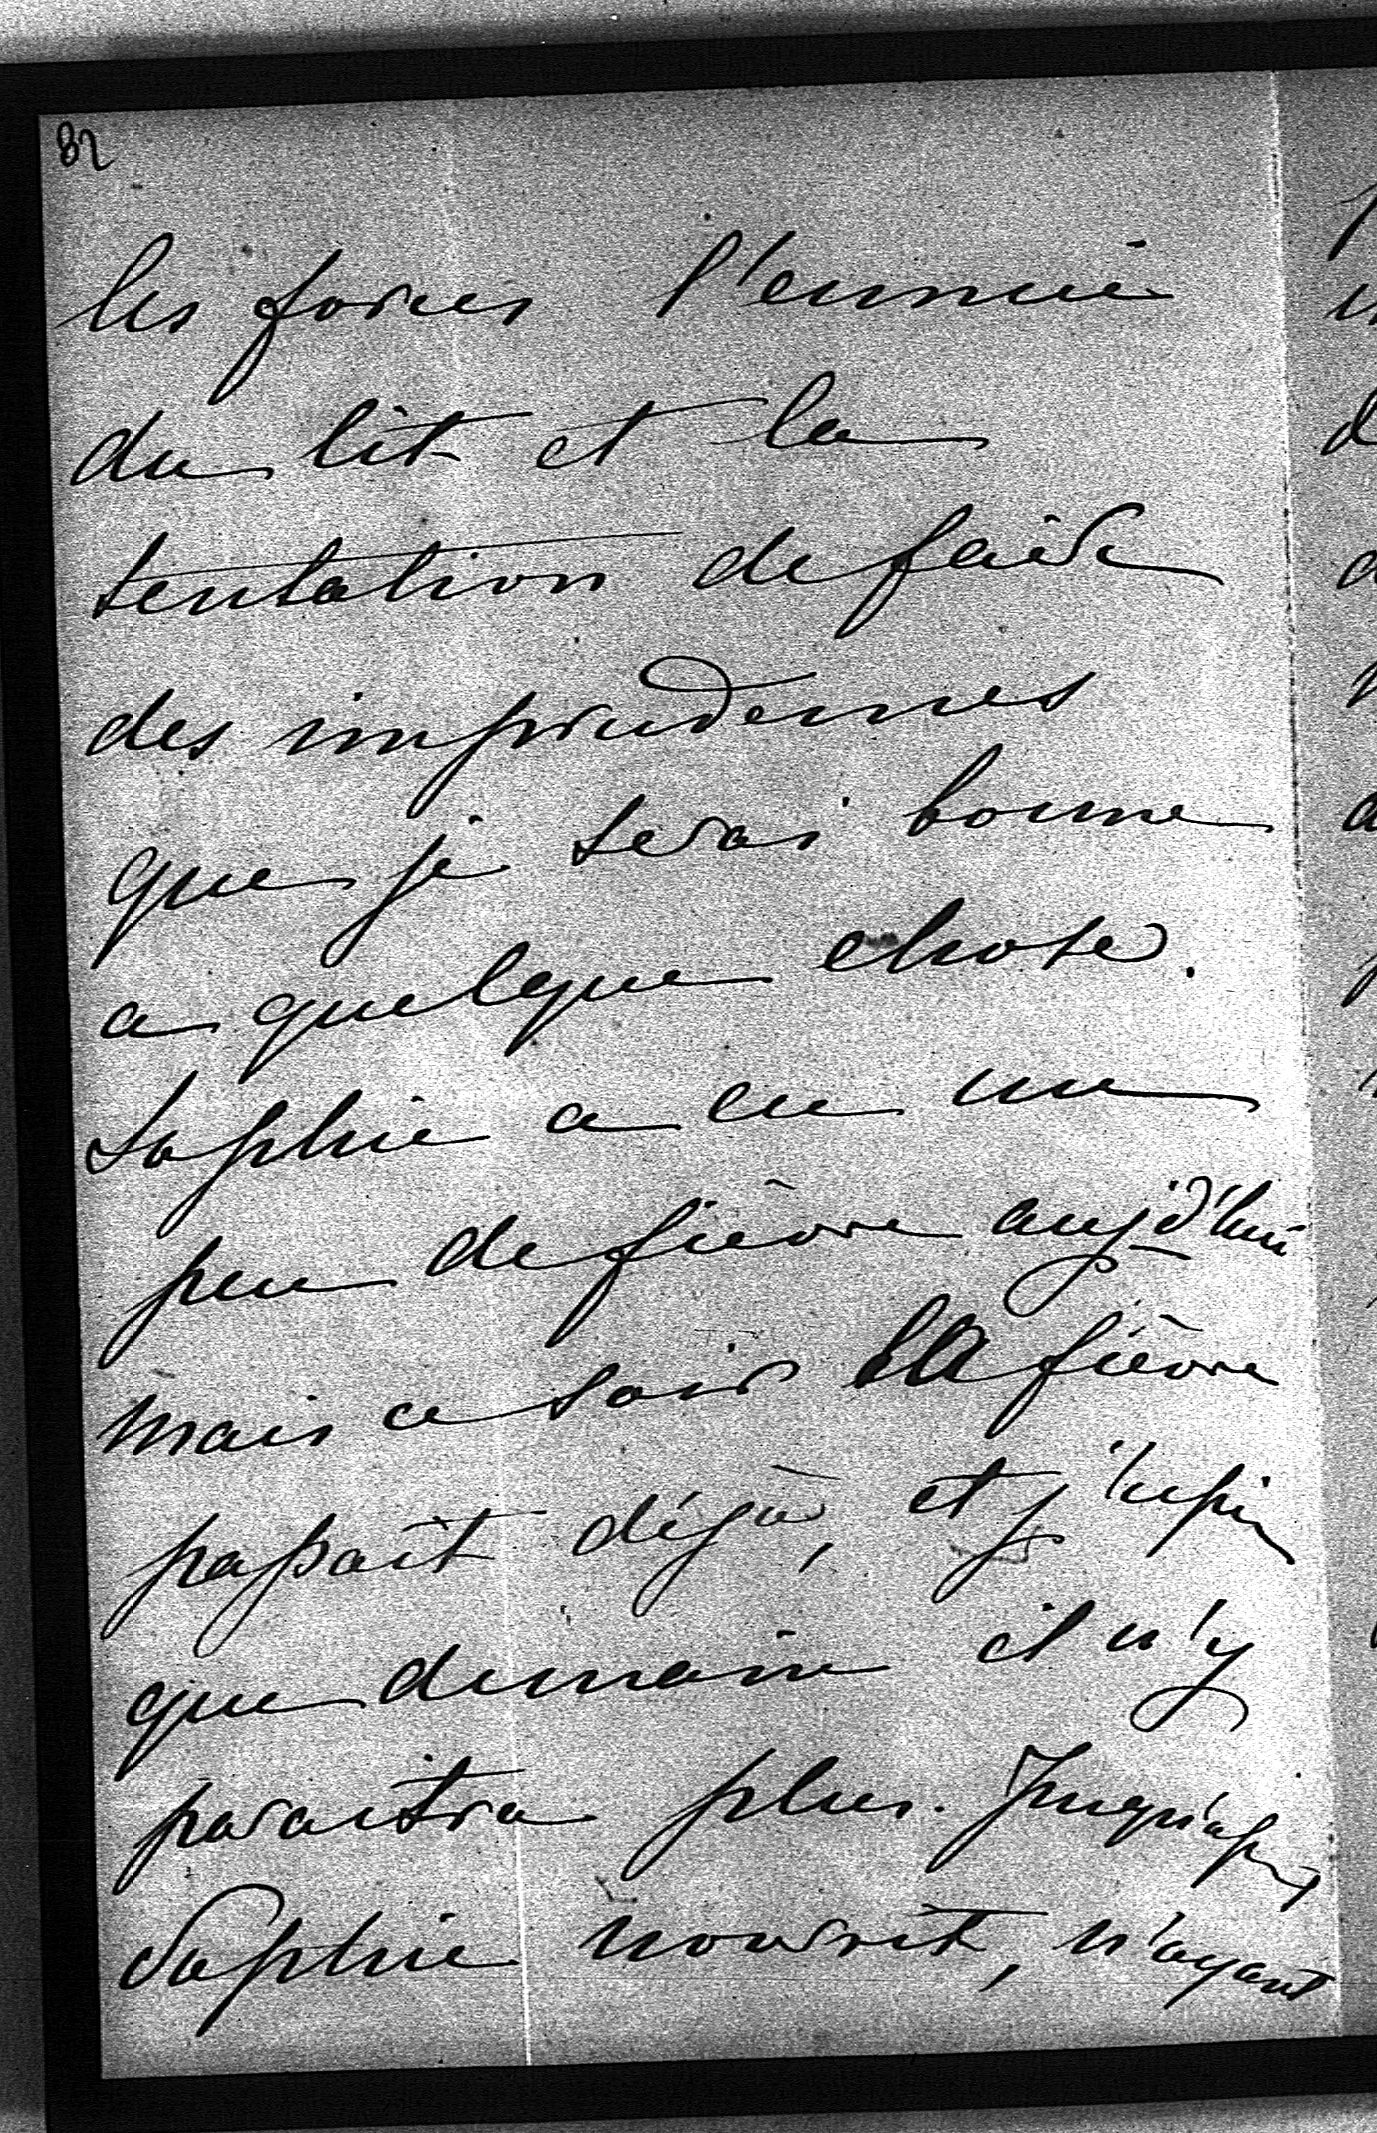 82
les forces l'ennui
du lit et la
tentation de faire
des imprudences
que je serai bonne
a quelque chose.
Sophie a eu un
peu de fièvre aujd'hui
mais ce soir la fièvre
passait déjà, et j'espère
que demain il n'y
paraitra plus. Jusqu'après
Sophie nourrit, n'ayant